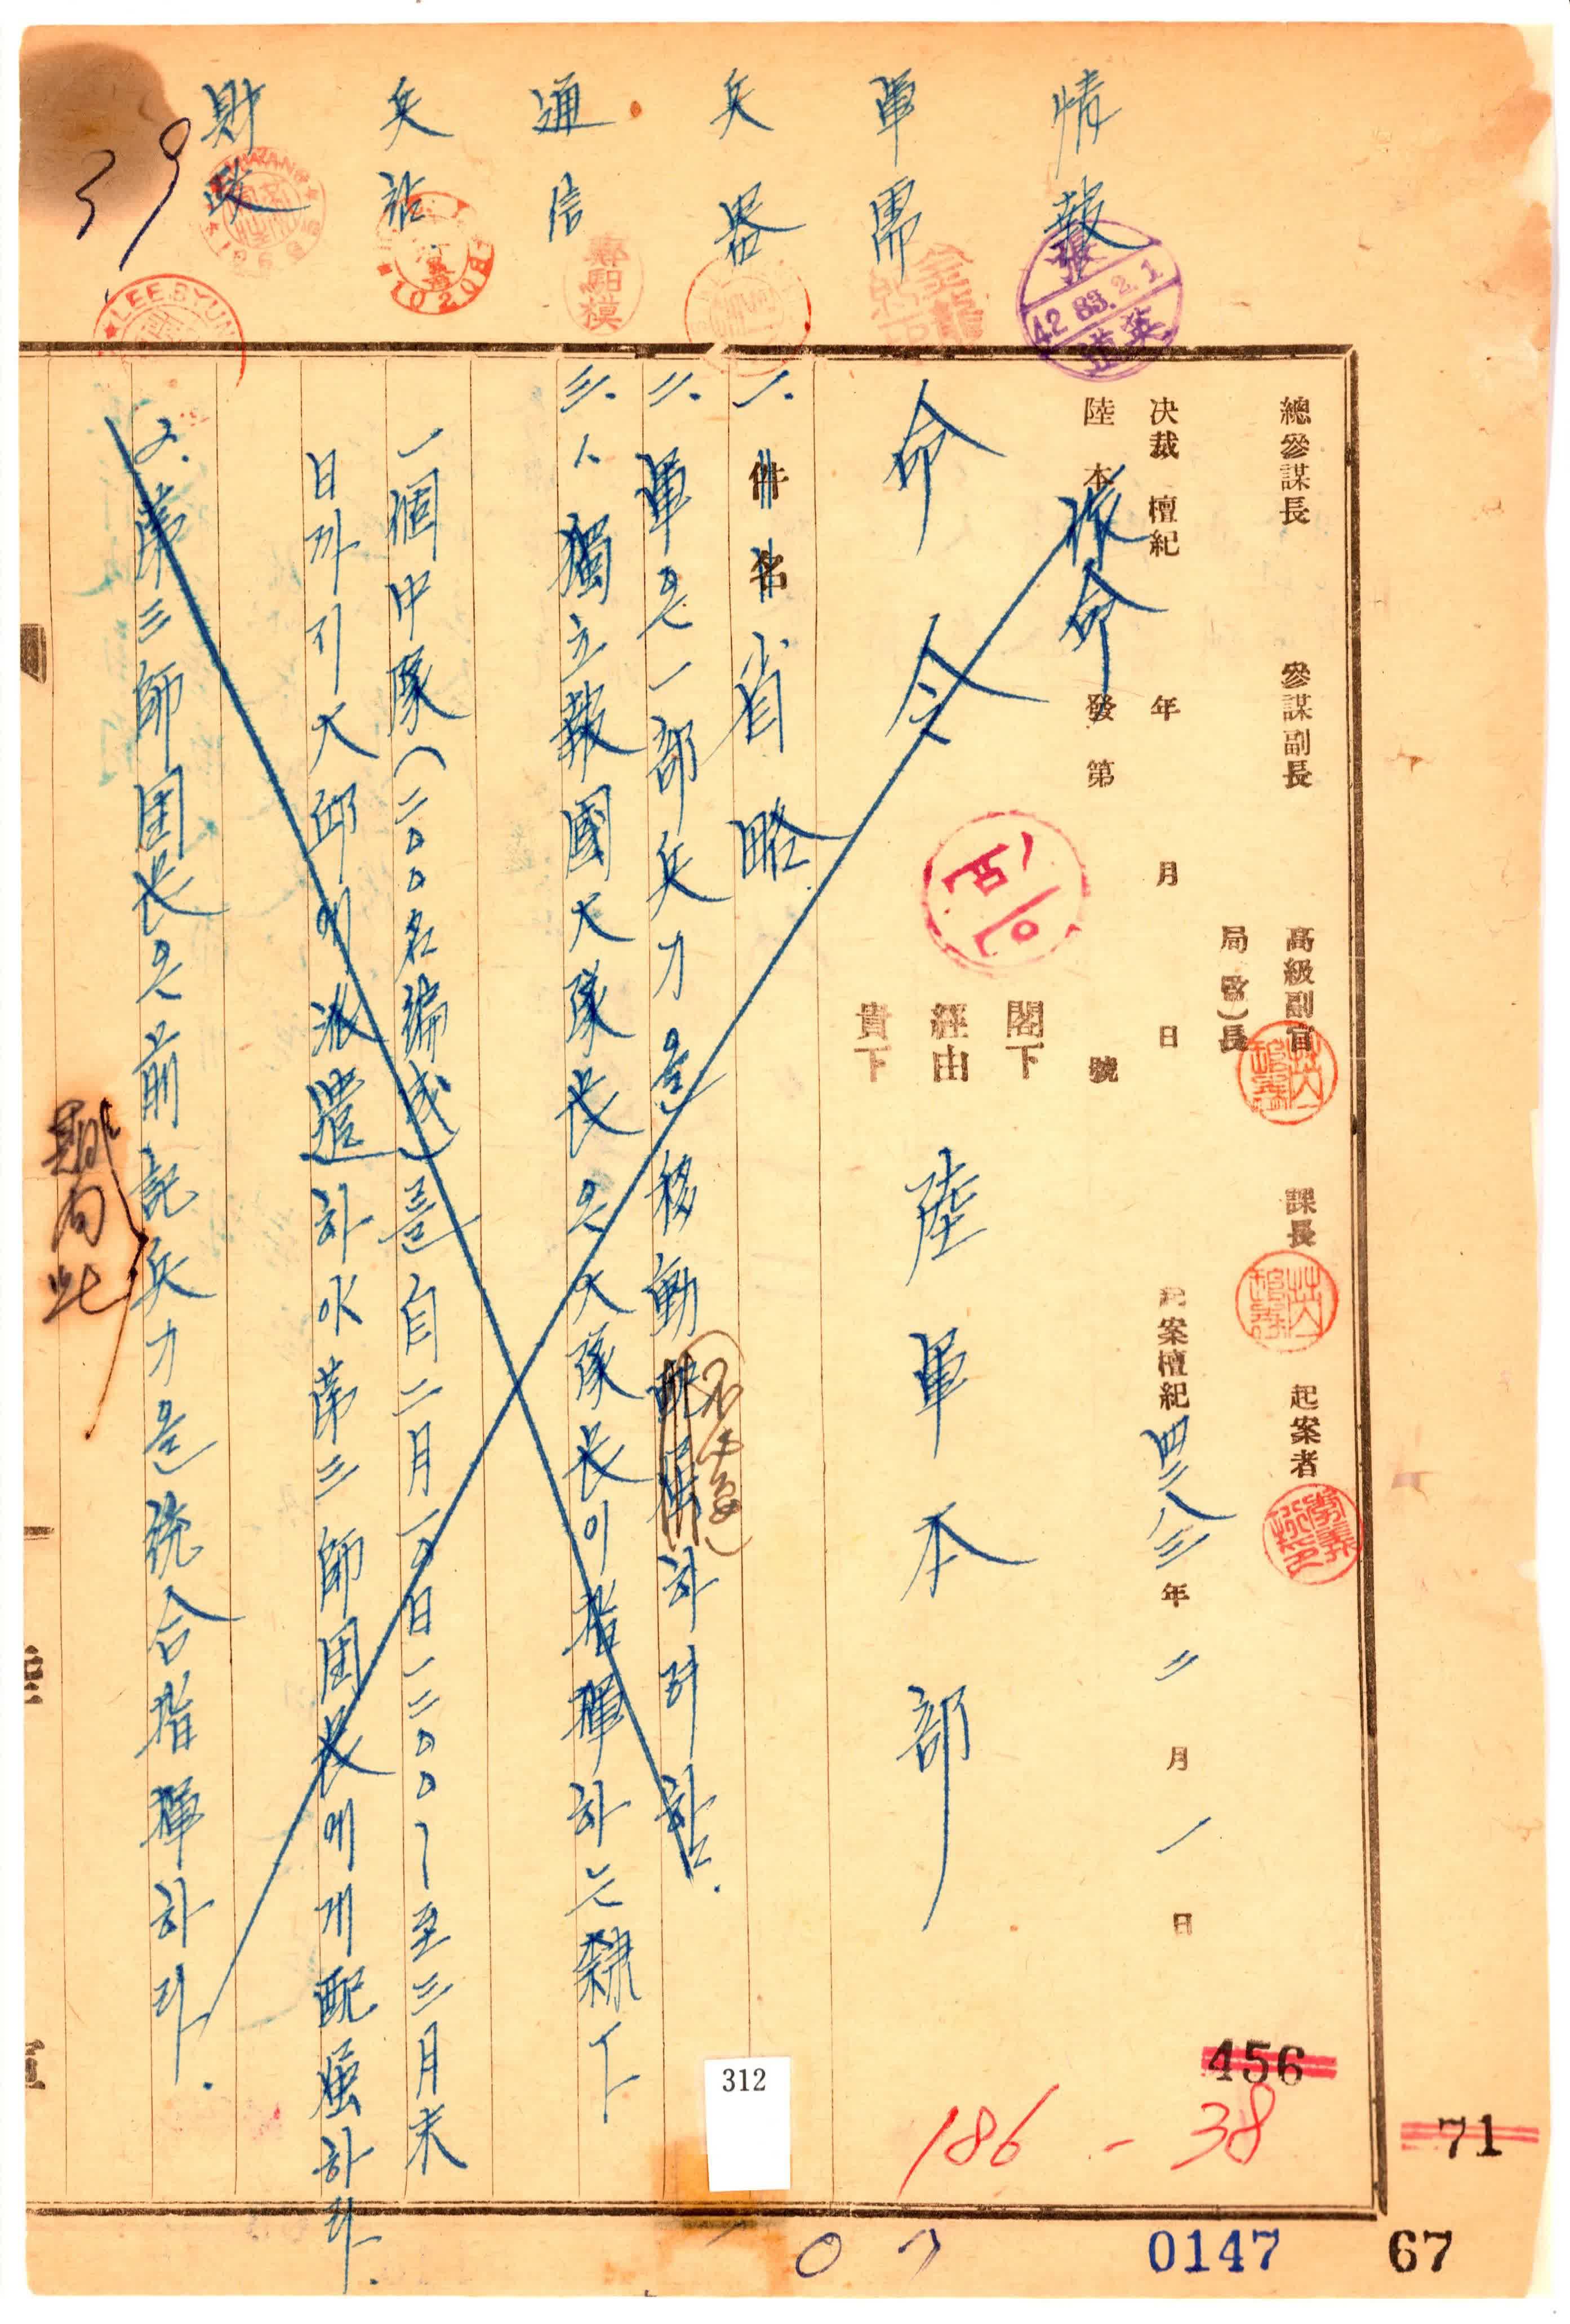 情報
軍需
兵器
通信
兵站
財政
39
張
4283.2.1
鄭駟模
LEE BYUN
總參謀長 參謀副長 高級副官 課長 起案者
局(室)長
決裁 檀紀 年 月 日 起案檀紀 四二八三年 二月 一日
陸本 發 第 號
作命
閣下
經由
貴下
命令 陸軍本部
一. 件名 省略
二. 軍은 一部 兵力을 移動 하려 함.
不必要
三. 1. 獨立報國大隊長은 大隊長이 指揮하는 隷下
一個中隊(二00名編成)를 自二月一0日一二00~至三月末
日까지 大邱에 派遣하여 第三師団長에게 配屬하라.
2. 第三師団長은 前記兵力을 統合指揮하라.
456
186-38
312
71
107
0147
67